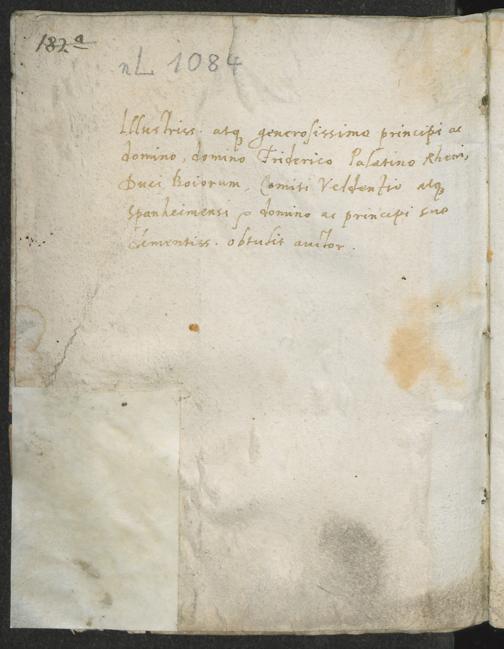 182a
nL 1084
Illustriss. atq generosissimo principi ac
domino, domino Friderico Palatino Rheni,
Duci Boiorum, Comiti Veldentio atq
Spanheimensi domino ac principi suo
clementiss. obtulit autor.